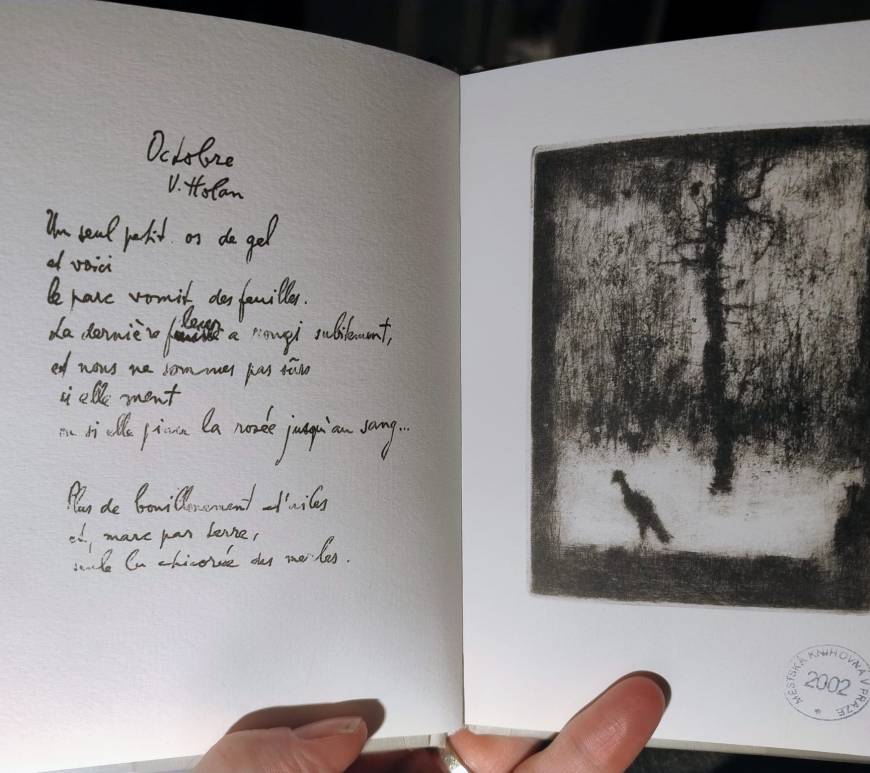 Octobre
V. Holan
Un seul petit os de gel
et voici
le parc vomit des feuilles.
La dernière fleur a rougi subitement,
et nous ne sommes pas sûrs
si elle ment
ou si elle la rosée jusqu'au sang...
Plus de bouillonnement d'ailes
et, marc par terre,
seule la chicorée des merles.
MĚSTSKÁ KNIHOVNA V PRAZE
2002